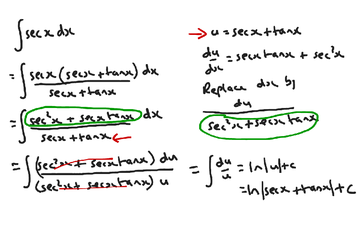 ∫ secx dx
= ∫ secx (secx + tanx) dx
secx + tanx
= ∫ sec²x + secx tanx dx
secx + tanx ←
= ∫ (sec²x + secx tanx) du
(sec²x + secx tanx) u
→ u = secx + tanx
du/dx = secx tanx + sec²x
Replace dx by
du
sec²x + secx tanx
= ∫ du/u = ln|u| + c
= ln|secx + tanx| + c